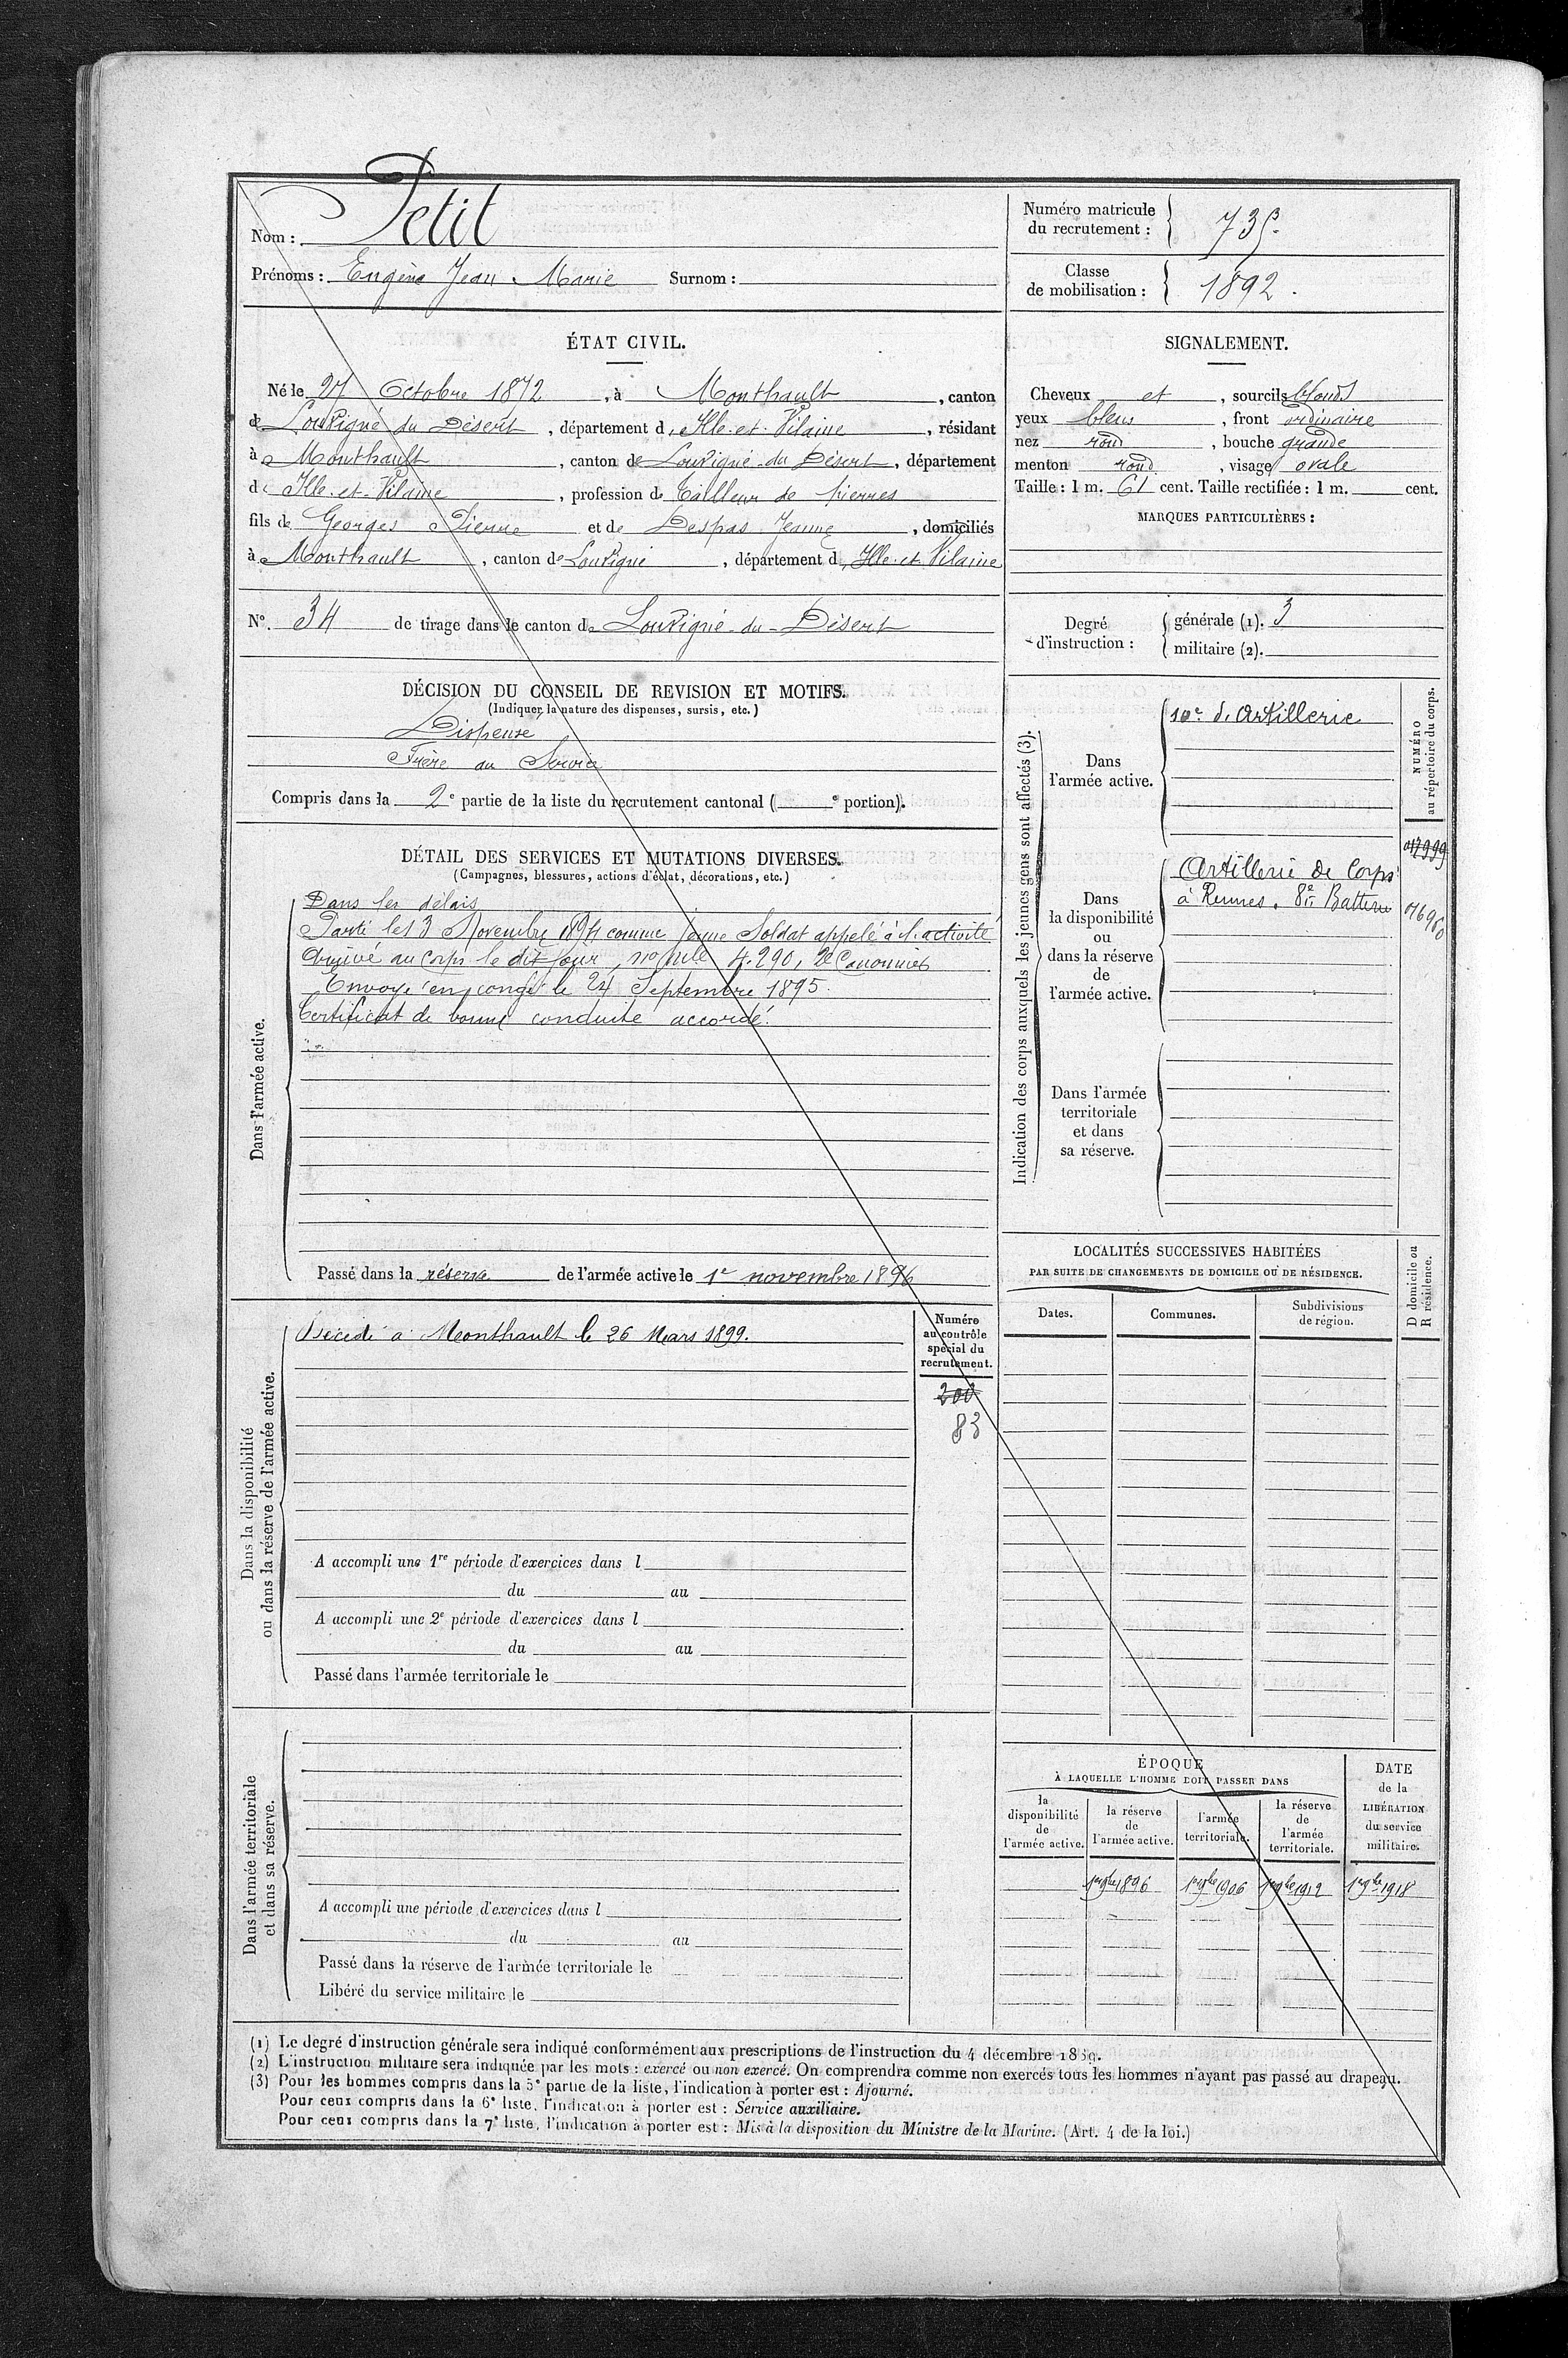 Nom : Petit
Prénoms : Eugène Jean Marie Surnom :
Numéro matricule du recrutement : 735.
Classe de mobilisation : 1892.
ÉTAT CIVIL.
Né le 27 Octobre 1872, à Monthault, canton
de Louvigné du Désert, département d'Ille-et-Vilaine, résidant
à Monthault, canton de Louvigné-du-Désert, département
d'Ille-et-Vilaine, profession de tailleur de pierres
fils de Georges Pierre et de Despas Jeanne, domiciliés
à Monthault, canton de Louvigné, département d'Ille-et-Vilaine
N°. 34 de tirage dans le canton de Louvigné-du-Désert
SIGNALEMENT.
Cheveux et, sourcils blonds
yeux bleus, front ordinaire
nez rond, bouche grande
menton rond, visage ovale
Taille : 1 m. 61 cent. Taille rectifiée : 1 m. cent.
MARQUES PARTICULIÈRES :
Degré d'instruction : générale (1). 3
militaire (2).
DÉCISION DU CONSEIL DE REVISION ET MOTIFS.
(Indiquer la nature des dispenses, sursis, etc.)
Dispensé
Frère au Service
Compris dans la 2e partie de la liste du recrutement cantonal ( e portion).
DÉTAIL DES SERVICES ET MUTATIONS DIVERSES.
(Campagnes, blessures, actions d'éclat, décorations, etc.)
Dans l'armée active.
Dans les délais
Parti le 13 Novembre 1894 comme jeune Soldat appelé à l'activité
Arrivé au Corps le dit jour, no mle 4.290, 2e Canonnier
Envoyé en congé le 24 Septembre 1895.
Certificat de bonne conduite accordé.
Passé dans la réserve de l'armée active le 1er novembre 1896
Indication des corps auxquels les jeunes gens sont affectés (3).
NUMÉRO au répertoire du corps.
Dans l'armée active.
10e d'Artillerie
Dans la disponibilité ou dans la réserve de l'armée active.
Artillerie de Corps
à Rennes. 8e Batterie
Dans l'armée territoriale et dans sa réserve.
LOCALITÉS SUCCESSIVES HABITÉES
PAR SUITE DE CHANGEMENTS DE DOMICILE OU DE RÉSIDENCE.
Dates.
Communes.
Subdivisions de région.
D domicile ou R résidence.
Dans la disponibilité ou dans la réserve de l'armée active.
Décédé à Monthault le 26 Mars 1899.
Numéro au contrôle spécial du recrutement.
200
83
A accompli une 1re période d'exercices dans l
du au
A accompli une 2e période d'exercices dans l
du au
Passé dans l'armée territoriale le
Dans l'armée territoriale et dans sa réserve.
A accompli une période d'exercices dans l
du au
Passé dans la réserve de l'armée territoriale le
Libéré du service militaire le
ÉPOQUE
À LAQUELLE L'HOMME DOIT PASSER DANS
la disponibilité de l'armée active.
la réserve de l'armée active.
l'armée territoriale.
la réserve de l'armée territoriale.
DATE de la LIBÉRATION du service militaire.
1er 9bre 1896
1er 9bre 1906
1er 9bre 1912
1er 9bre 1918
(1) Le degré d'instruction générale sera indiqué conformément aux prescriptions de l'instruction du 4 décembre 1889.
(2) L'instruction militaire sera indiquée par les mots : exercé ou non exercé. On comprendra comme non exercés tous les hommes n'ayant pas passé au drapeau.
(3) Pour les hommes compris dans la 5e partie de la liste, l'indication à porter est : Ajourné.
Pour ceux compris dans la 6e liste, l'indication à porter est : Service auxiliaire.
Pour ceux compris dans la 7e liste, l'indication à porter est : Mis à la disposition du Ministre de la Marine. (Art. 4 de la loi.)